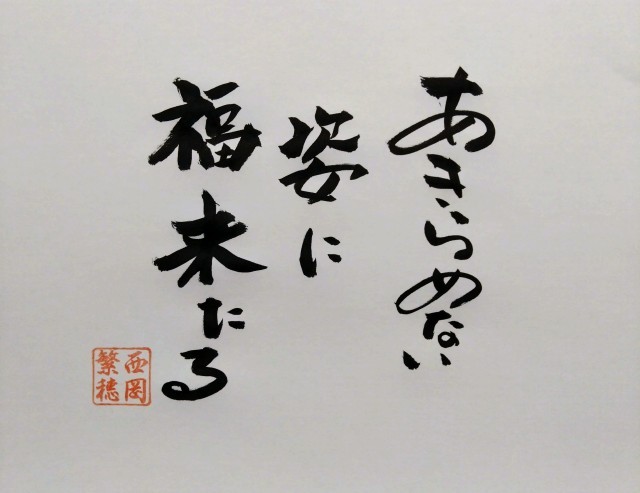 あきらめない
姿に
福来たる
西岡
繁穂